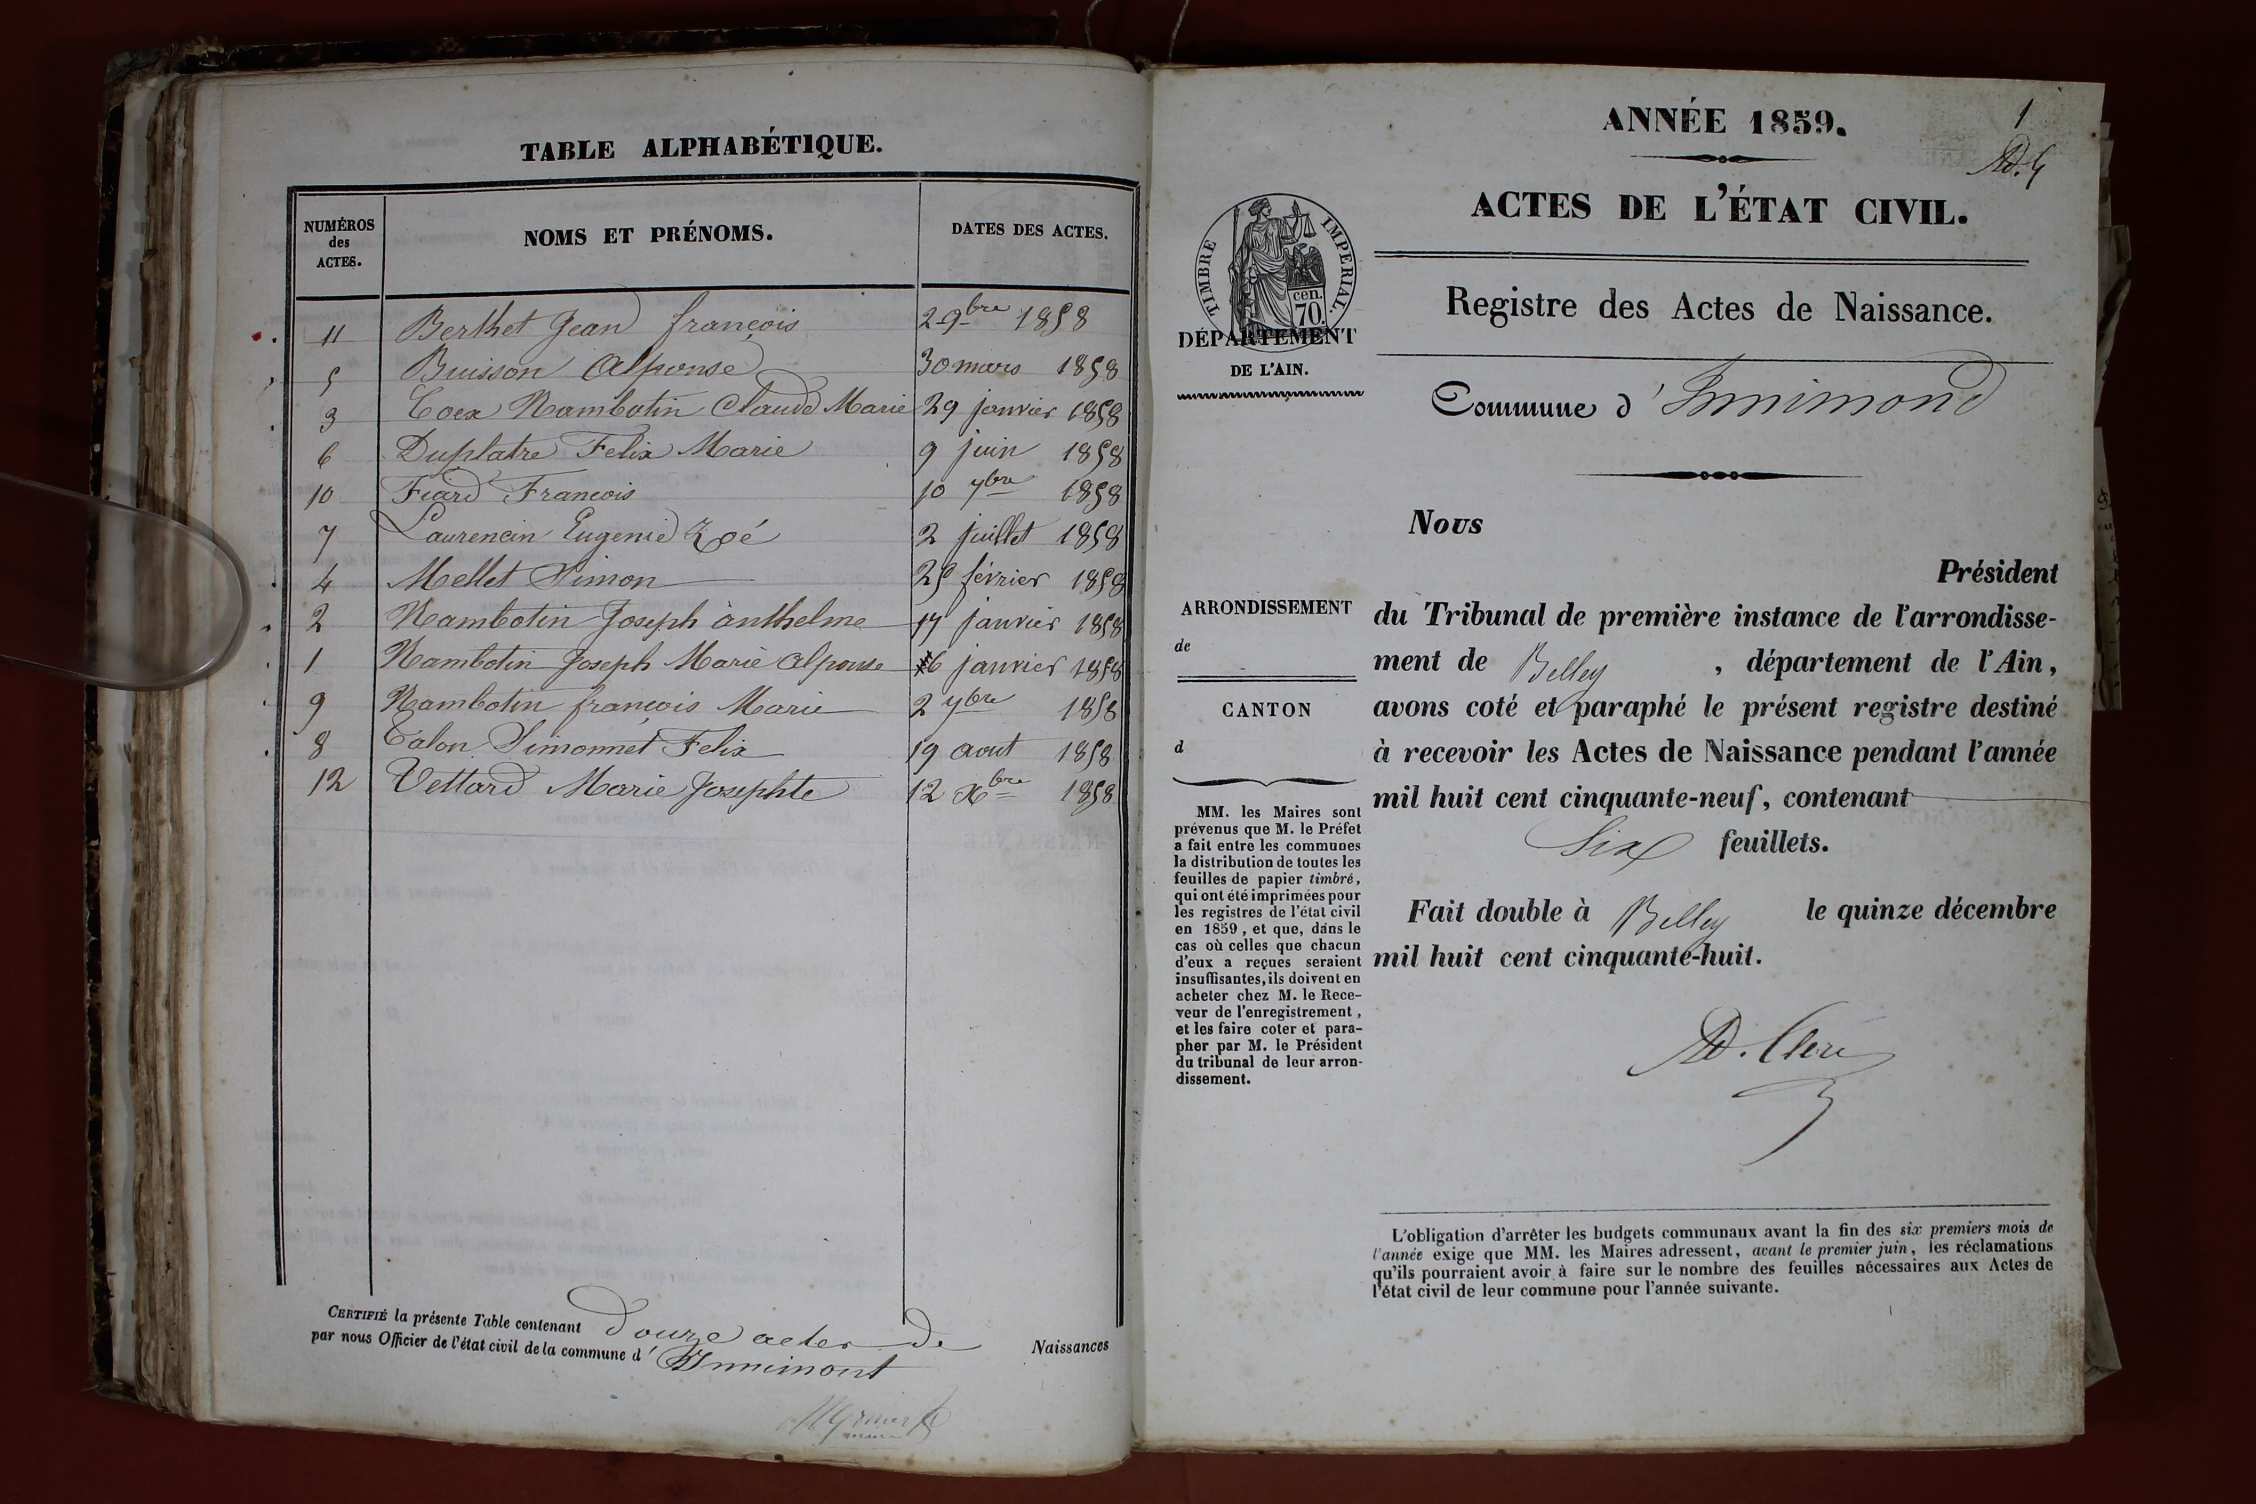 TABLE ALPHABÉTIQUE.
NUMÉROS des ACTES. NOMS ET PRÉNOMS. DATES DES ACTES.
11 Berthet Jean françois 2 9bre 1858
5 Buisson Alponse 30 mars 1858
3 Coex Nambotin Claude Marie 29 janvier 1858
6 Duplatre Felix Marie 9 juin 1858
10 Fiard Francois 10 7bre 1858
7 Laurencin Eugenie Zoé 2 juillet 1858
4 Mellet Simon 25 février 1858
2 Nambotin Joseph anthelme 17 janvier 1858
1 Nambotin Joseph Marie alponse 6 janvier 1858
9 Nambotin françois Marie 2 7bre 1858
8 Talon Simonnet Felix 19 aout 1858
12 Vettard Marie Josephte 12 Xbre 1858
CERTIFIÉ la présente Table contenant douze actes de Naissances
par nous Officier de l'état civil de la commune d' Innimont
ANNÉE 1859.
1
ACTES DE L'ÉTAT CIVIL.
TIMBRE IMPÉRIAL.
cen.
70.
Registre des Actes de Naissance.
DÉPARTEMENT
DE L'AIN.
Commune d' Innimond
Nous
Président
du Tribunal de première instance de l'arrondisse-
ment de Belley , département de l'Ain,
avons coté et paraphé le présent registre destiné
à recevoir les Actes de Naissance pendant l'année
mil huit cent cinquante-neuf, contenant
Six feuillets.
Fait double à Belley le quinze décembre
mil huit cent cinquante-huit.
ARRONDISSEMENT
de
CANTON
d
MM. les Maires sont
prévenus que M. le Préfet
a fait entre les communes
la distribution de toutes les
feuilles de papier timbré,
qui ont été imprimées pour
les registres de l'état civil
en 1859, et que, dans le
cas où celles que chacun
d'eux a reçues seraient
insuffisantes, ils doivent en
acheter chez M. le Rece-
veur de l'enregistrement,
et les faire coter et para-
pher par M. le Président
du tribunal de leur arron-
dissement.
L'obligation d'arrêter les budgets communaux avant la fin des six premiers mois de
l'année exige que MM. les Maires adressent, avant le premier juin, les réclamations
qu'ils pourraient avoir à faire sur le nombre des feuilles nécessaires aux Actes de
l'état civil de leur commune pour l'année suivante.